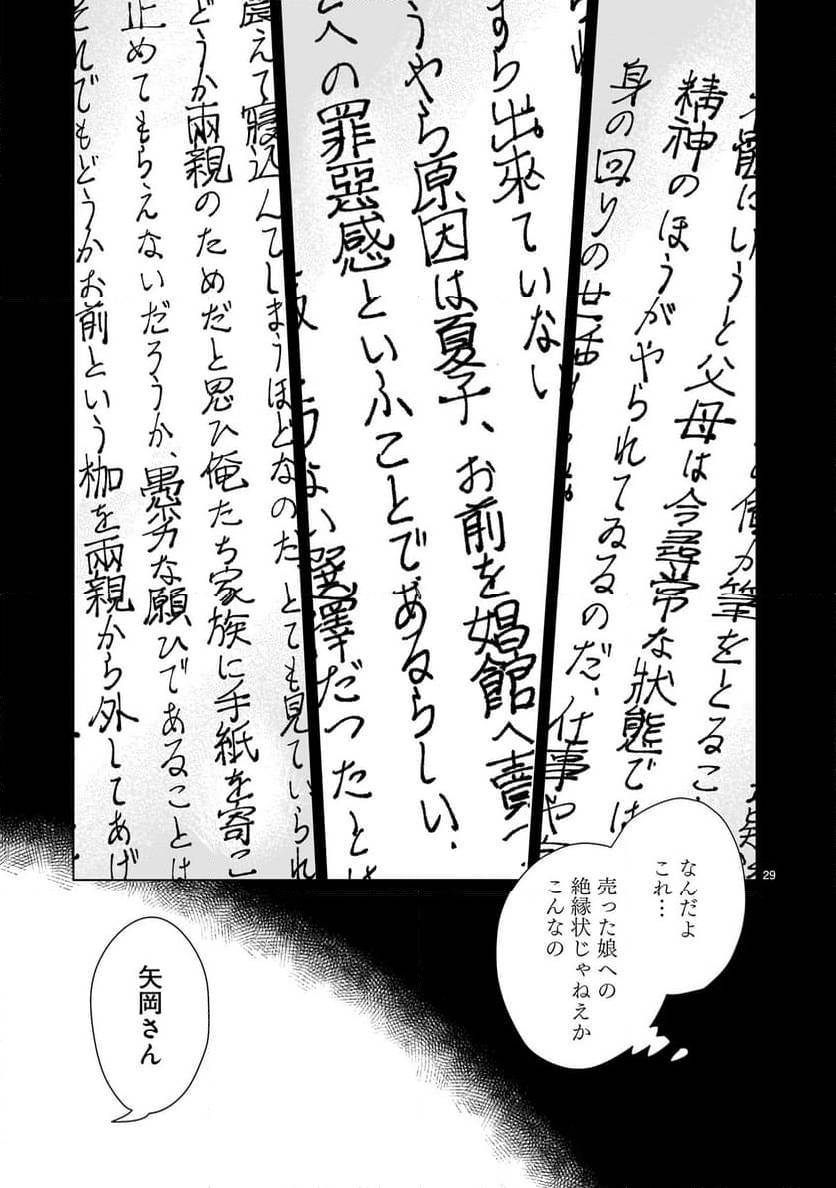 筆をとるこ
精神のほうがやられてゐるのだ、仕事や
身の回りの世話
と父母は今尋常な状態では
すら出來ていない
うやら原因は夏子、お前を娼館へ賣
への罪惡感といふことであるらしい、
ない選擇だつたとは
震えて寝込んでしまうほどなのだ、とても見ていられ
どうか兩親のためだと思ひ俺たち家族に手紙を寄こ
止めてもらえないだろうか、愚劣な願ひであることは
それでもどうかお前という枷を兩親から外してあげ
29
なんだよ
これ…
売った娘への
絶縁状じゃねえか
こんなの
矢岡さん